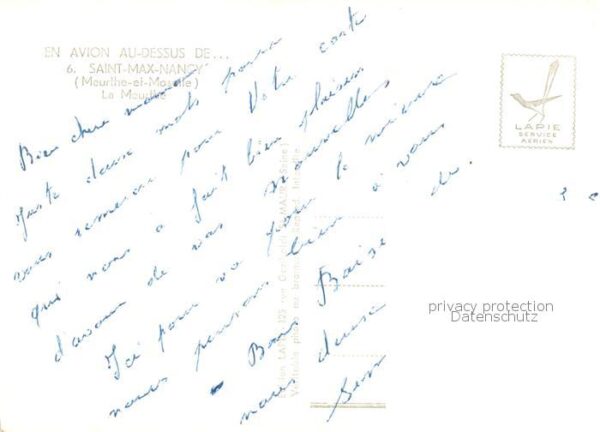 EN AVION AU-DESSUS DE...
6. SAINT-MAX-NANCY
(Meurthe-et-Moselle)
La Meurthe
LAPIE
SERVICE
AERIEN
Bien chere maman
Juste deux mots pour
vous remercier pour Votre carte
qui nous a fait bien plaisir
d'avoir de vos nouvelles
Ici pour va pour le mieux
nous pensons bien a vous
Bons Baise de
nous deux
privacy protection
Datenschutz